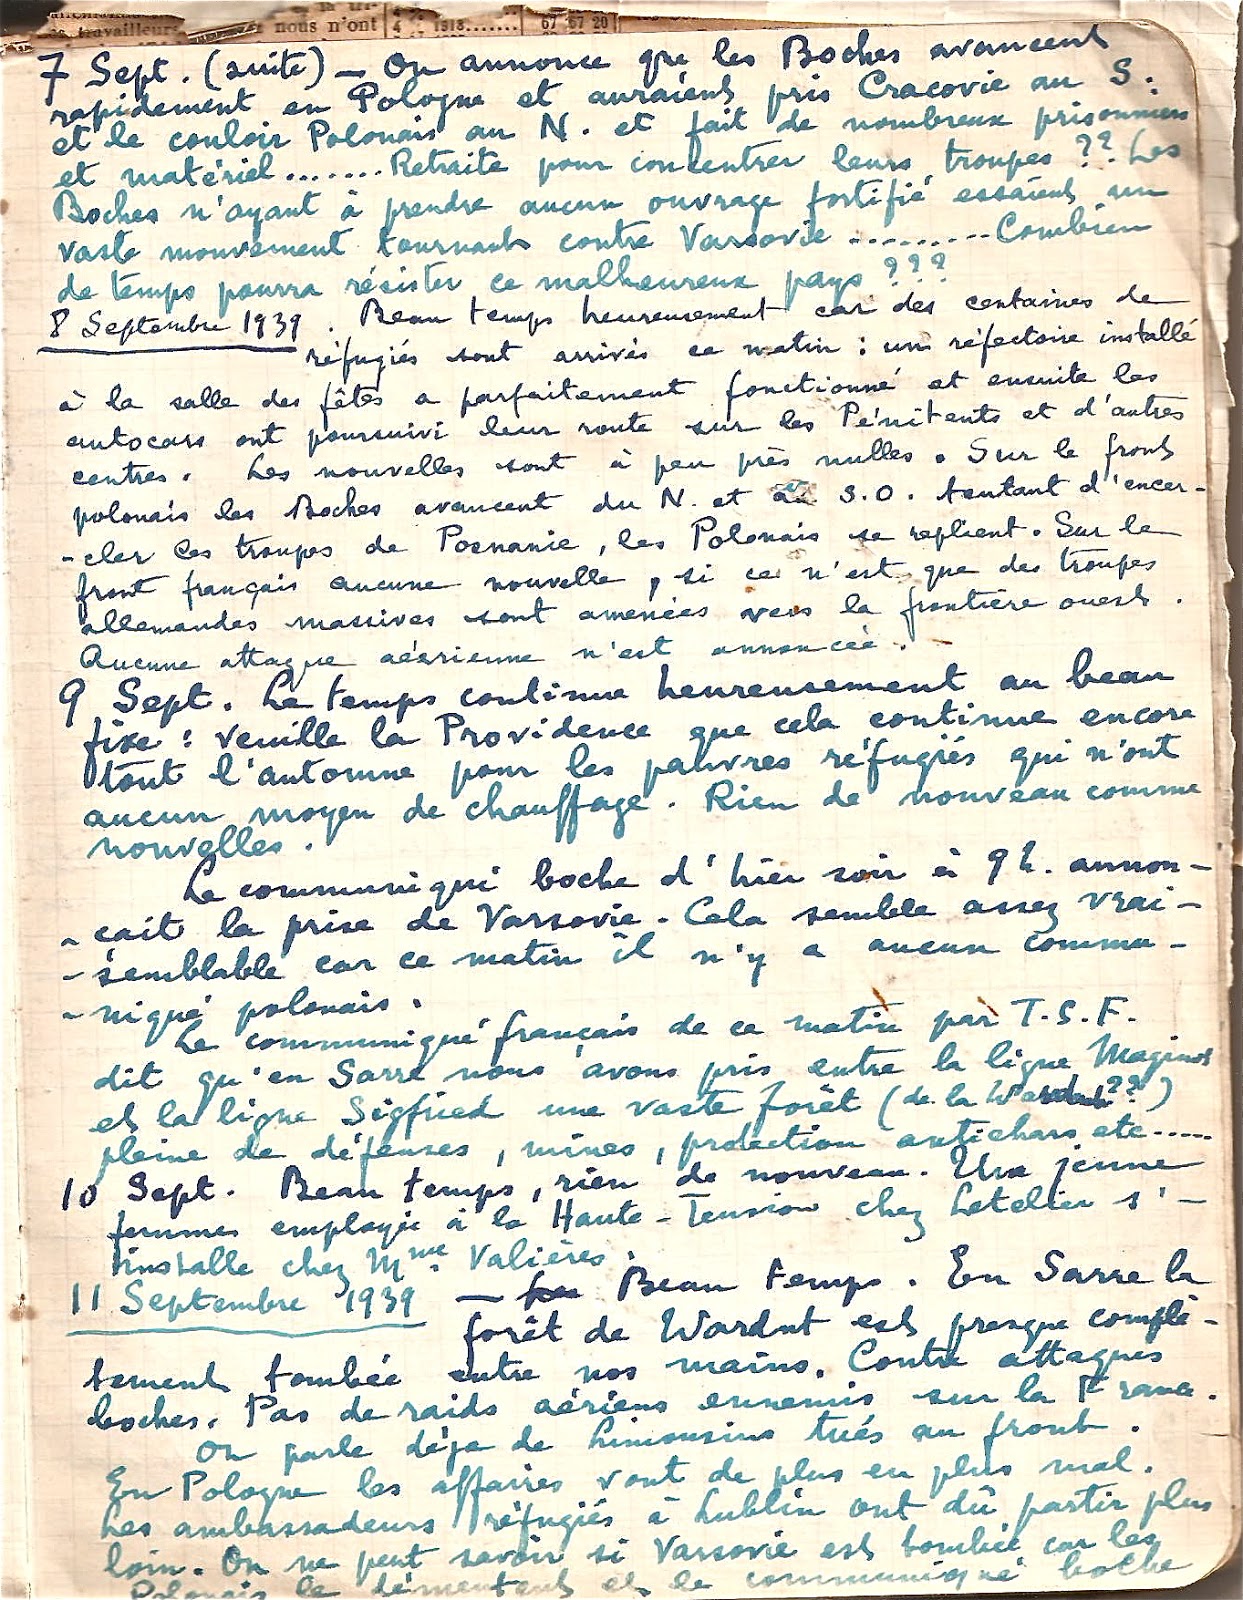 travailleurs
nous n'ont
4
1918.......
67 67 20
7 Sept. (suite) — On annonce que les Boches avancent
rapidement en Pologne et auraient pris Cracovie au S.
et le couloir Polonais au N. et fait de nombreux prisonniers
et matériel.......Retraite pour concentrer leurs troupes ??. Les
Boches n'ayant à prendre aucun ouvrage fortifié essaient un
vaste mouvement tournant contre Varsovie .........Combien
de temps pourra résister ce malheureux pays ???
8 Septembre 1939 . Beau temps heureusement car des centaines de
réfugiés sont arrivés ce matin : un réfectoire installé
à la salle des fêtes a parfaitement fonctionné et ensuite les
autocars ont poursuivi leur route sur les Pénitents et d'autres
centres. Les nouvelles sont à peu près nulles. Sur le front
polonais les Boches avancent du N. et S.O. tentant d'encer-
-cler les troupes de Posnanie, les Polonais se replient. Sur le
front français aucune nouvelle, si ce n'est que des troupes
allemandes massives sont amenées vers la frontière ouest.
Aucune attaque aérienne n'est annoncée.
9 Sept. Le temps continue heureusement au beau
fixe : veuille la Providence que cela continue encore
tout l'automne pour les pauvres réfugiés qui n'ont
aucun moyen de chauffage. Rien de nouveau comme
nouvelles.
Le communiqué boche d'hier soir à 9h. annon-
-cait la prise de Varsovie. Cela semble assez vrai-
-semblable car ce matin il n'y a aucun commu-
-niqué polonais.
Le communiqué français de ce matin par T.S.F.
dit qu'en Sarre nous avons pris entre la ligne Maginot
et la ligne Sigfried une vaste forêt (de la ??)
pleine de défenses, mines, protection antichars etc.....
10 Sept. Beau temps, rien de nouveau. Une jeune
femme employée à la Haute-Tension chez Letelier s'-
installe chez Mme. Valières.
11 Septembre 1939 — Beau temps. En Sarre la
forêt de Wardnt est presque complè-
tement tombée entre nos mains. Contre attaques
boches. Pas de raids aériens ennemis sur la France.
On parle déja de Limousins tués au front.
En Pologne les affaires vont de plus en plus mal.
Les ambassadeurs réfugiés à Lublin ont dû partir plus
loin. On ne peut savoir si Varsovie est tombée car les
Polonais le démentent et le communiqué boche